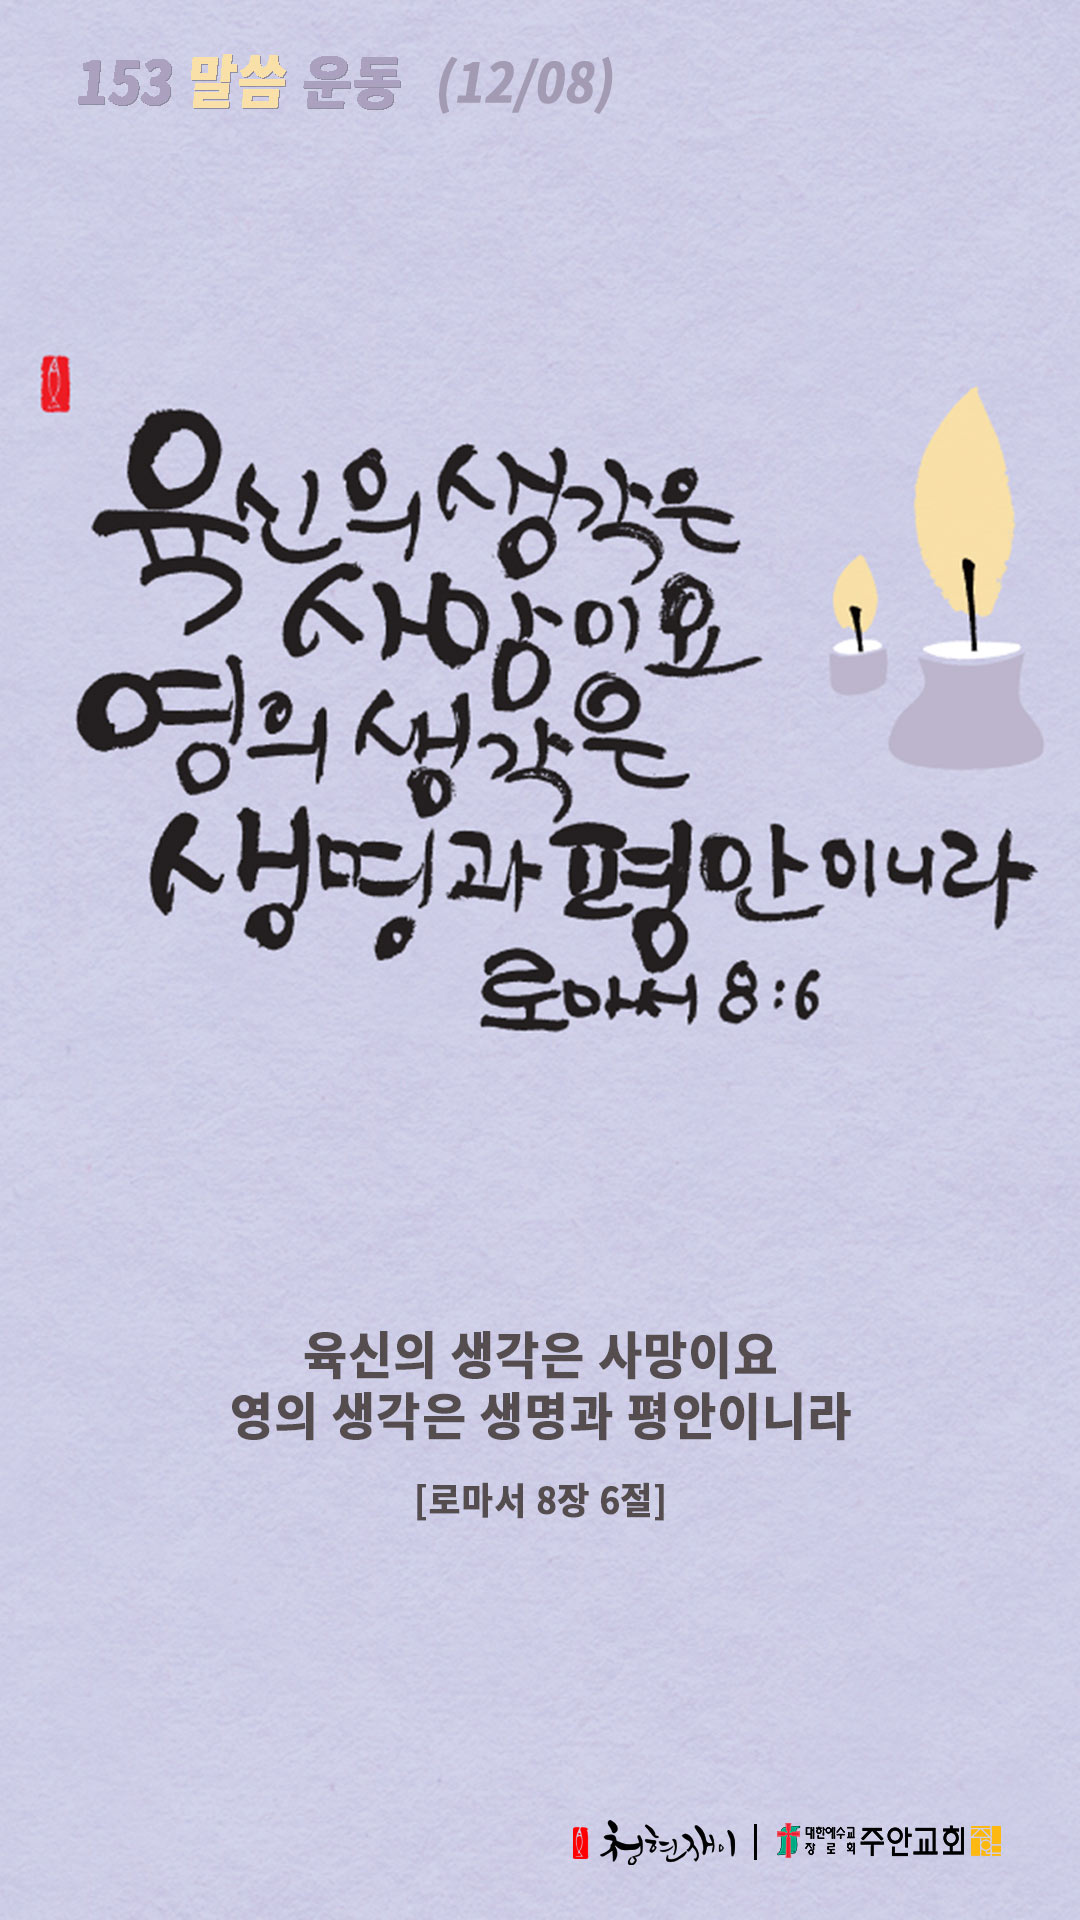 153 말씀 운동 (12/08)
육신의 생각은
사망이요
영의 생각은
생명과 평안이니라
로마서 8:6
육신의 생각은 사망이요
영의 생각은 생명과 평안이니라
[로마서 8장 6절]
청현재이 | 대한예수교 장로회 주안교회